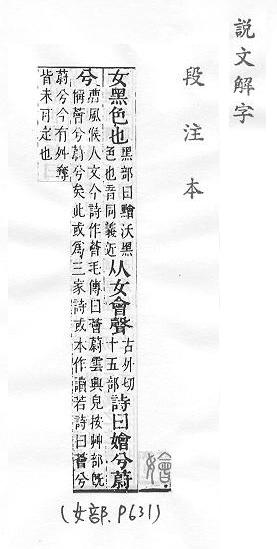 說文解字
段注本
嬒
女黑色也黑部曰䵳沃黑色也音同義近从女會聲古外切十五部詩曰嬒兮蔚
兮曹風候人文今詩作薈毛傳曰薈蔚雲興皃按艸部旣稱薈兮蔚兮矣此或爲三家詩或本作讀若詩曰薈兮
蔚兮今有舛奪皆未可定也
(女部.P631)